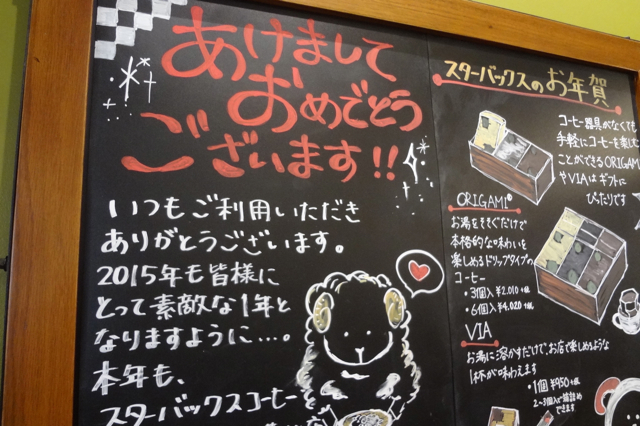 あけまして
おめでとう
ございます!!
いつもご利用いただき
ありがとうございます。
2015年も皆様に
とって素敵な1年と
なりますように…。
本年も、
スターバックスコーヒーと
スターバックスのお年賀
コーヒー器具がなくても
手軽にコーヒーを楽しむ
ことができるORIGAMI
やVIAはギフトに
ぴったりです
ORIGAMI
お湯をそそぐだけで
本格的な味わいを
楽しめるドリップタイプの
コーヒー
・3個入 ¥2,010
・6個入 ¥4,020
VIA
お湯に溶かすだけで、お店で楽しめるような
1杯が味わえます
・1個 ¥950
2~3個入に箱詰め
できます